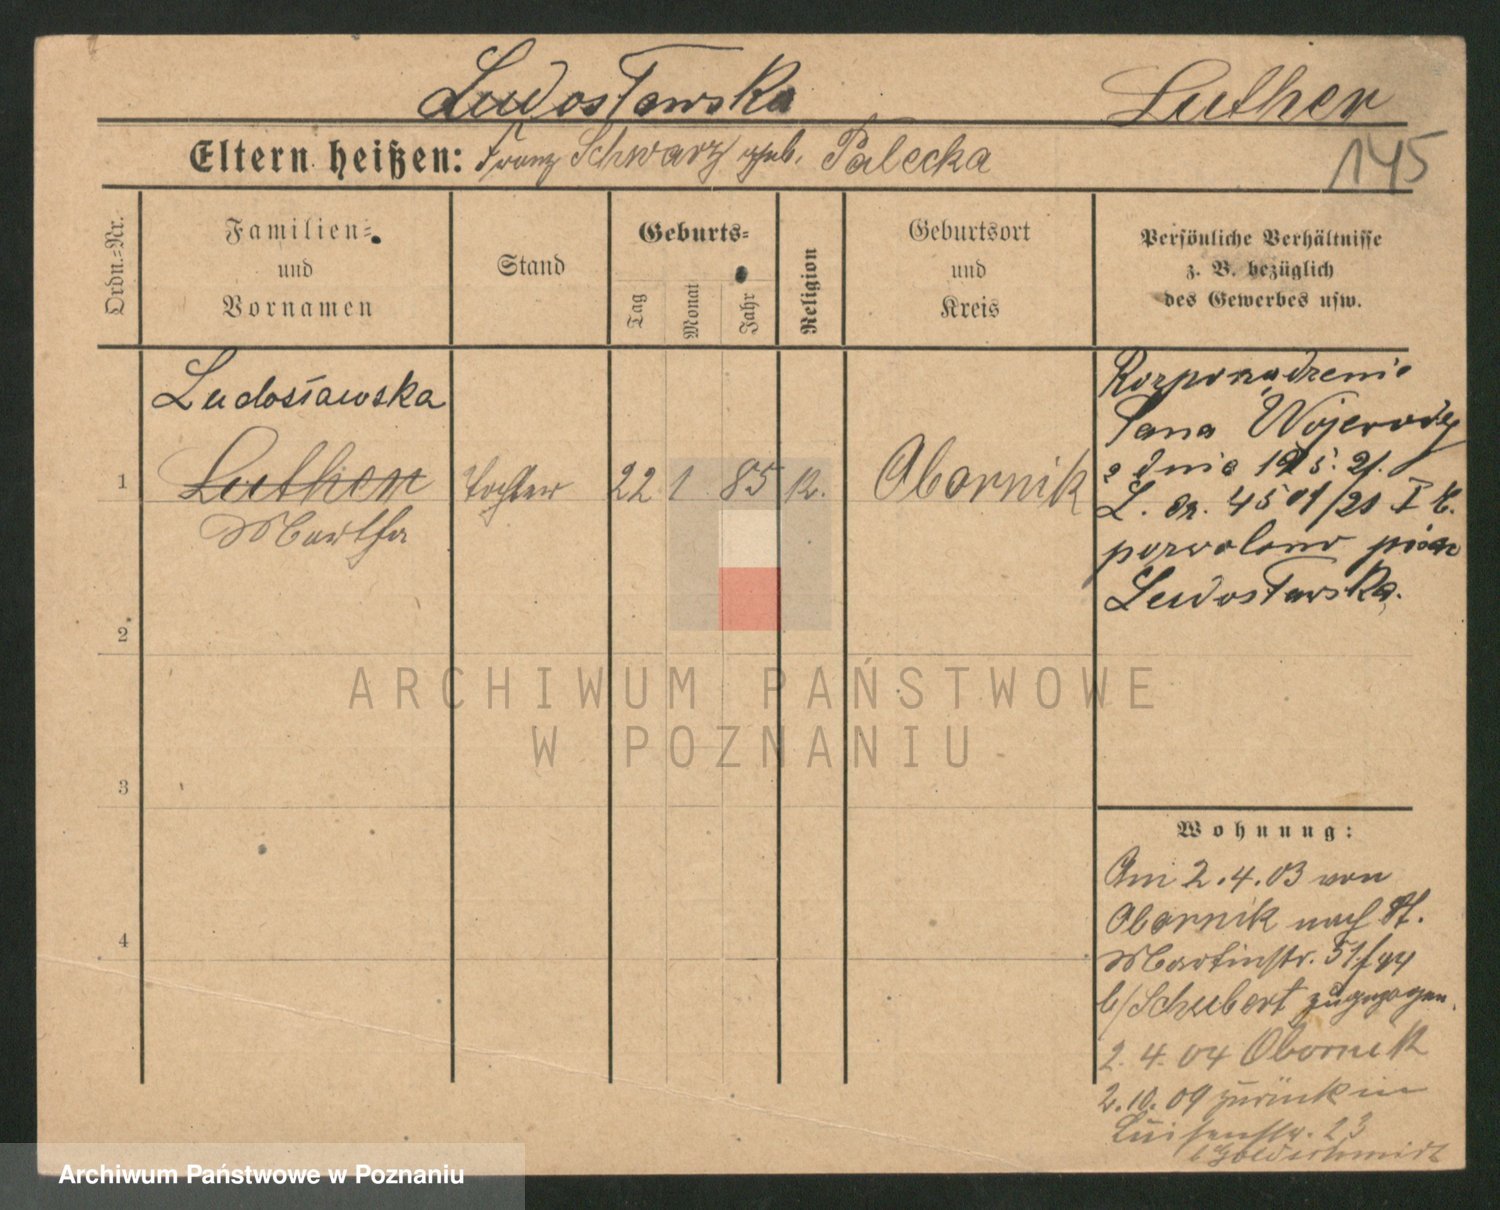 Ludosławska Luther
145
Eltern heißen: Franz Schwarz geb. Palecka
Ordn.-Nr.
Familien-
und
Vornamen
Stand
Geburts-
Tag
Monat
Jahr
Religion
Geburtsort
und
Kreis
Persönliche Verhältnisse
z. B. bezüglich
des Gewerbes usw.
Ludosławska
1 Luther Tochter 22 1 85 K. Obornik
Martha
2
3
4
Rozporządzenie
Pana Wojewody
z dnia 19 5. 21.
L. dz. 4501/21 I
pozwolono
Ludosławska.
Wohnung:
Am 2.4.03 von
Obornik nach St.
Martinstr. 51/
b/Schubert zugezogen.
2.4.04 Obornik
2.10.09 zurück in
Luisenstr. 23
Goldschmidt
ARCHIWUM PAŃSTWOWE
W POZNANIU
Archiwum Państwowe w Poznaniu